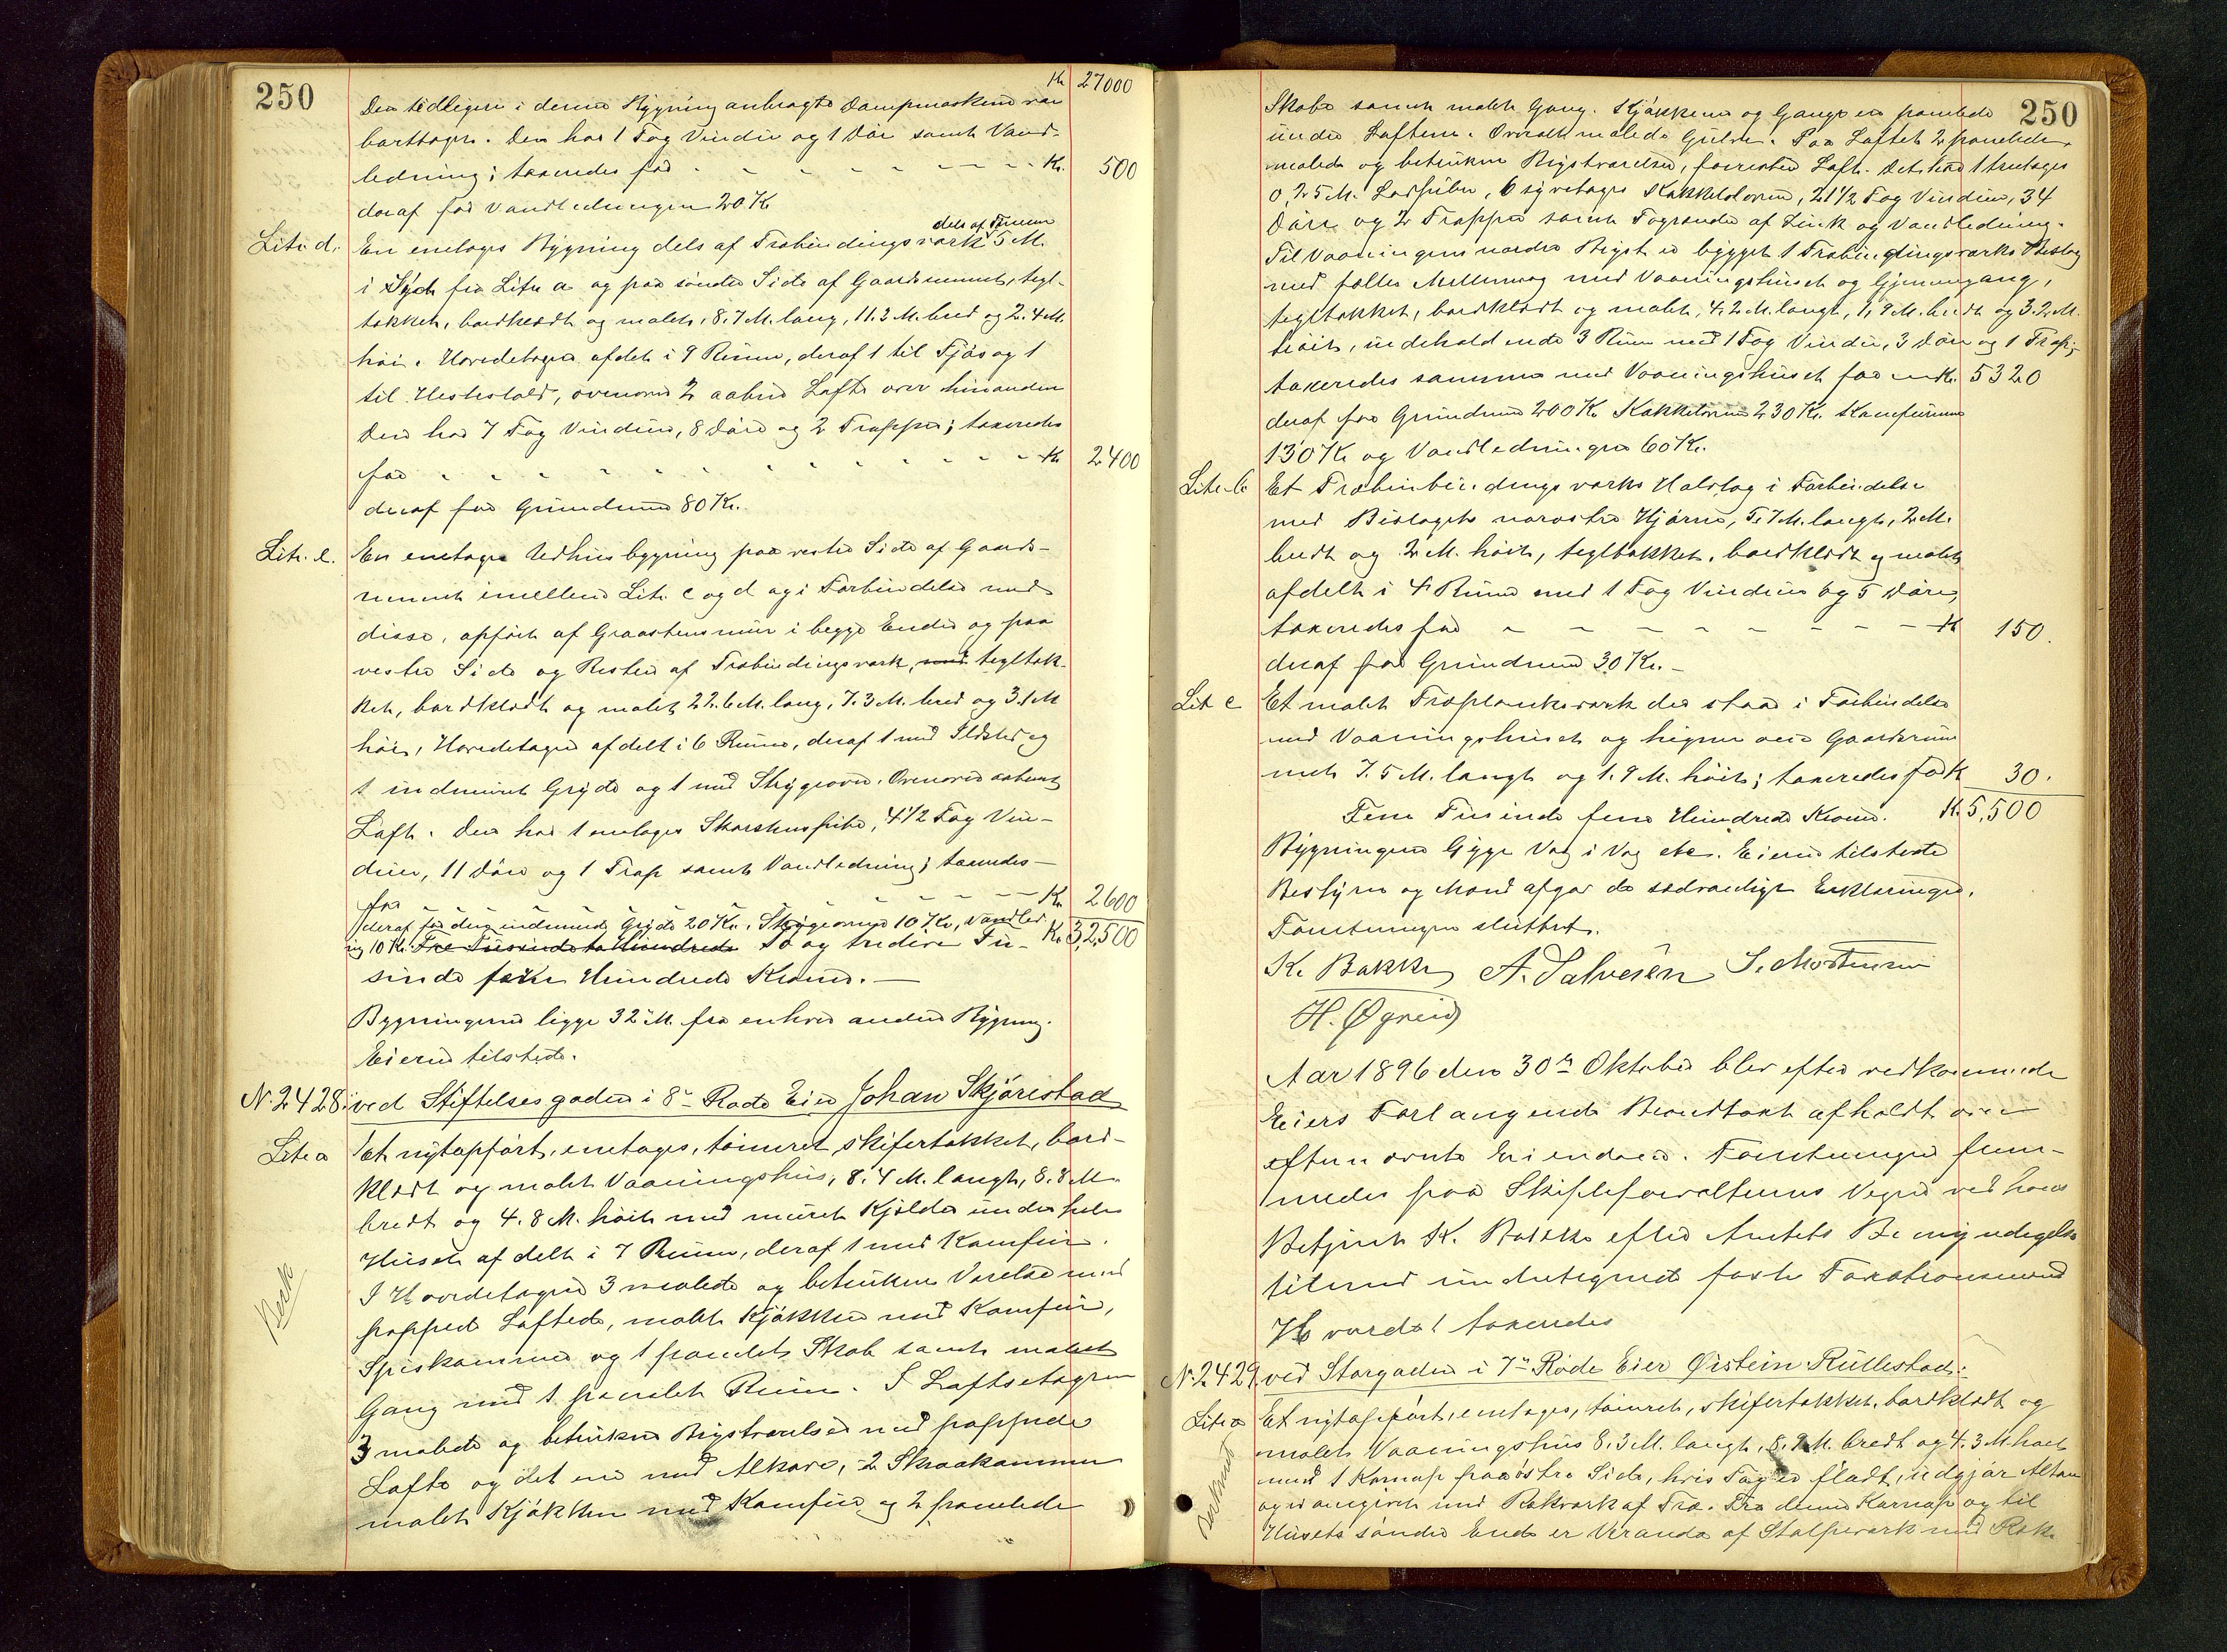 250
Kr 27000
Den tidligere i denne Bygning anbragte Dampmaskine var
borttagen. Den har 1 Fag Vinduer og 1 Dør samt Vand-
ledning; taxeredes for - - - - - - - Kr. 500
deraf for Vandledningen 20 Kr.
Litr. d. En enetages Bygning dels af Træbindingsværk dels af Tømmer 5 M.
i Syd fra Litr a og paa søndre Side af Gaardsrummet, tegl-
tækket, bordklædt og malet, 8.7 M. lang, 11.3 M. bred og 2.4 M.
høi. Hovedetagen afdelt i 9 Rum, deraf 1 til Fjøs og 1
til Hestestald, ovenover 2 aabne Lofte over hinanden
Den har 7 Fag Vinduer, 8 Døre og 2 Trapper; taxeredes
for - - - - - - - - - - Kr 2400
deraf for Grundmur 80 Kr.
Litr. e. En enetages Udhusbygning paa vestre Side af Gaards-
rummet imellem Litr. c og d og i Forbindelse med
disse, opført af Graastensmur i begge Ender og paa
vestre Side og Resten af Træbindingsværk, med tegltæk-
ket, bordklædt og malet 22.6 M. lang, 7.3 M. bred og 3.1 M
høi, Hovedetagen afdelt i 6 Rum, deraf 1 med Ildsted og
1 indmuret Gryde og 1 med Strygeovn. Ovenover aabent
Loft. Den har 1 enetages Skorstenspibe, 4 1/2 Fag Vin-
duer, 11 Døre og 1 Trap samt Vandledning; taxeredes
for - - - - - - - - - Kr. 2600
deraf for den indmurede Gryde 20 Kr., Strygeovnen 10 Kr., Vandled
ning 10 Kr. Tre Tusinde to Hundrede To og tredive Tu- Kr. 32,500
sinde fem Hundrede Kroner. —
Bygningerne ligge 32 M. fra enhver anden Bygning.
Eieren tilstede.
N. 2428. ved Stiftelsesgaden i 8de Rode Eier Johan Skjørestad
Litr a Et nytopført, enetages, tømret, skifertækket, bord-
klædt og malet Vaaningshus, 8.4 M. langt, 8.8 M.
bredt og 4.8 M. høit med muret Kjelder under hele
Huset afdelt i 7 Rum, deraf 1 med Komfur.
I Hovedetagen 3 malede og betrukne Værelser med
pappede Lofte, malet Kjøkken med Komfur,
Spiskammer og 1 panelet Skab samt malet
Gang med 1 panelet Rum. I Loftsetagen
3 malede og betrukne Kvistværelser med pappede
Lofte og det ene med Alkove, 2 Skraakammer
malet Kjøkken med Komfur og 2 panelede
250
Skabe samt malet Gang. Kjøkkene og Gange er panelede
under Loftene. Overalt malede Gulve. Paa Loftet 2 panelede,
malede og betrukne Kvistværelser, forresten Loft. Det har 1 treetages
0,25 M. Ladpibe, 6 syvetages Kakkelovne, 21 1/2 Fag Vinduer, 34
Døre og 2 Trapper samt Tagrender af Zink og Vandledning.
Til Vaaningens nordre Kvist er bygget 1 Træbindingsværks Bislag
med fælles Mellemvæg med Vaaningshuset og Gjennemgang,
tegltækket, bordklædt og malet, 4,2 M. langt, 1,9 M. bredt og 3.2 M.
høit, indeholdende 3 Rum med 1 Fag Vinduer, 3 Døre og 1 Trap;
taxeredes sammen med Vaaningshuset for Kr. 5320
deraf for Grundmur 200 Kr. Kakkelovne 230 Kr. Komfurene
130 Kr og Vandledningen 60 Kr.
Litr. b Et Træbindingsværks Halvtag i Forbindelse
med Bislagets nordøstre Hjørne, 5.7 M. langt, 2 M.
bredt og 2 M. høit, tegltækket, bordklædt og malet
afdelt i 4 Rum med 1 Fag Vinduer og 5 Døre,
taxeredes for - - - - - - - Kr 150.
deraf for Grundmur 30 Kr. -
Litr c Et malet Træplankeværk der staar i Forbindelse
med Vaaningshuset og hegner over Gaardsrum
met 7.5 M. langt og 1.9 M. høit; taxeredes for Kr 30.
Fem Tusinde fem Hundrede Kroner. Kr. 5,500
Bygningerne ligge Væg i Væg etc. Eieren tilstede
Bestyrer og Mænd afgav de sædvanlige Erklæringer.
Forretningen sluttet.
K. Bakke A. Salvesen S. Mortensen
H. Øgreid
Aar 1896 den 30te Oktober blev efter vedkommende
Eiers Forlangende Brandtaxt afholdt over
efternævnte Eiendom. Forretningen frem-
medes paa Skifteforvalterens Vegne ved hans
Betjent K. Bakke efter Amtets Bemyndigelse
tilmed undertegnede faste Taxationsmænd
Hvorda taxeredes
N. 2429. ved Storgaden i 7de Rode Eier Øistein Rullestad:
Litr a Et nytopført, enetages, tømret, skifertækket, bordklædt og
malet Vaaningshus 8.3 M. langt, 8.9 M. bredt og 4.3 M. høit
med 1 Karnap paa østre Side, hvis Tag er fladt, udgjør Altan
og er omgivet med Rækværk af Træ. Fra denne Karnap og til
Husets søndre Ende er Veranda af Stolpeværk med Ræk-